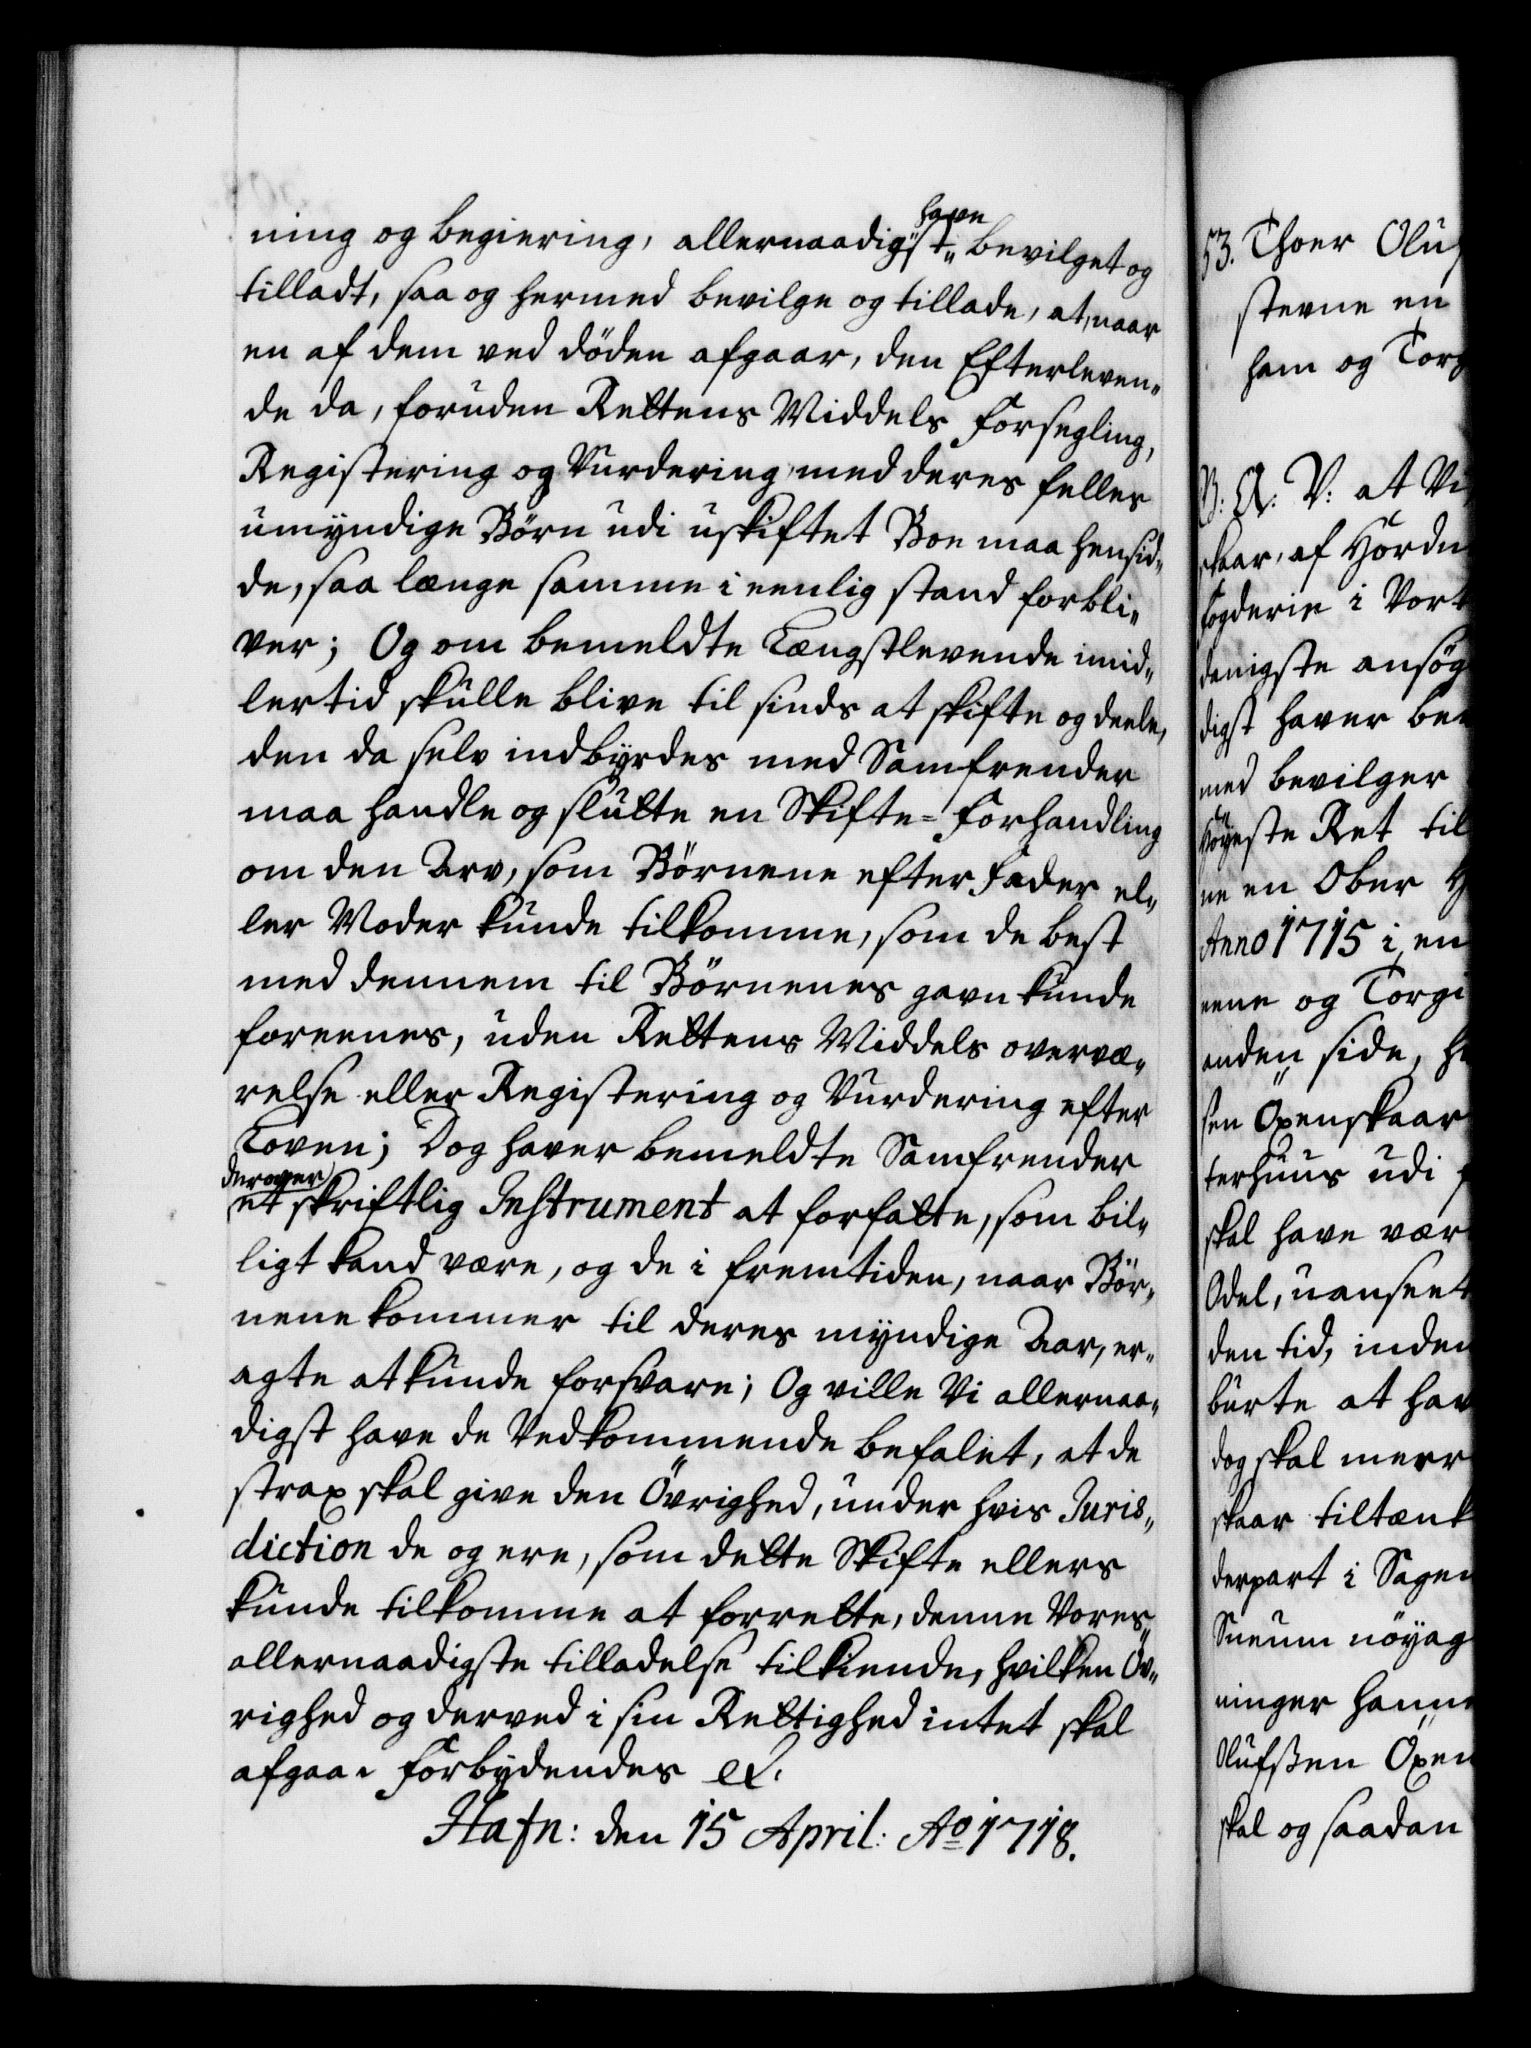 ning og begiering, allernaadigst have bevilget og
tilladt, saa og hermed bevilge og tillade, at, naar
en af dem ved döden afgaar, den Efterleven„
de da, foruden Rettens Middels Forsegling,
Registering og Vurdering, med deres felles
umyndige Börn udi uskiftet Boe maa hensid„
de, saa længe samme i eenlig stand forbli„
ver; Og om bemeldte Længstlevende imid„
lertid skulle blive til sinds at skifte og deele,
den da selv indbyrdes med Samfrender
maa handle og slutte en Skifte=Forhandling
om den Arv, som Börnene efter Fader el„
ler Moder kunde tilkomme, som de best
med dennem til Börnenes gavn kunde
foreenes, uden Rettens Middels overvæ„
relse eller Registering og Vurdering efter
Loven; Dog haver bemeldte Samfrender
derover
et skriftlig Instrument at forfatte, som bil„
ligt kand være, og de i fremtiden, naar Bör„
nene kommer til deres myndige Aar, er„
agte at kunde forsvare; Og ville Vi allernaa„
digst have de Vedkommende befalet, at de
strax skal give den Övrighed, under hvis Juris„
diction de og ere, som dette Skifte ellers
kunde tilkomme at forrette, denne Vores
allernaadigste tilladelse tilkiende, hvilken Öv„
righed og derved i sin Rettighed intet skal
afgaa. Forbydendes etc.
Hafn: den 15 April: Ao 1718.
53. Thoer Oluf
stevne en
ham og Torg
V. A. at Vi
skaar, af Hordn
fogderie i Vort
danigste ansög
digst haver be
med bevilger
Höyeste Ret til
ne en Ober
Anno 1715 i, en
eene og Torgi
anden side, h
sen Öxenskaar
terhuus udi
skal have vær
Odel, uanseet
den tid, inden
burte at hav
dog skal meer
skaar tiltænk
derpart i Sagen
Sneum nöyag
ninger hanne
Olufsßen Öxen
skal og saadan